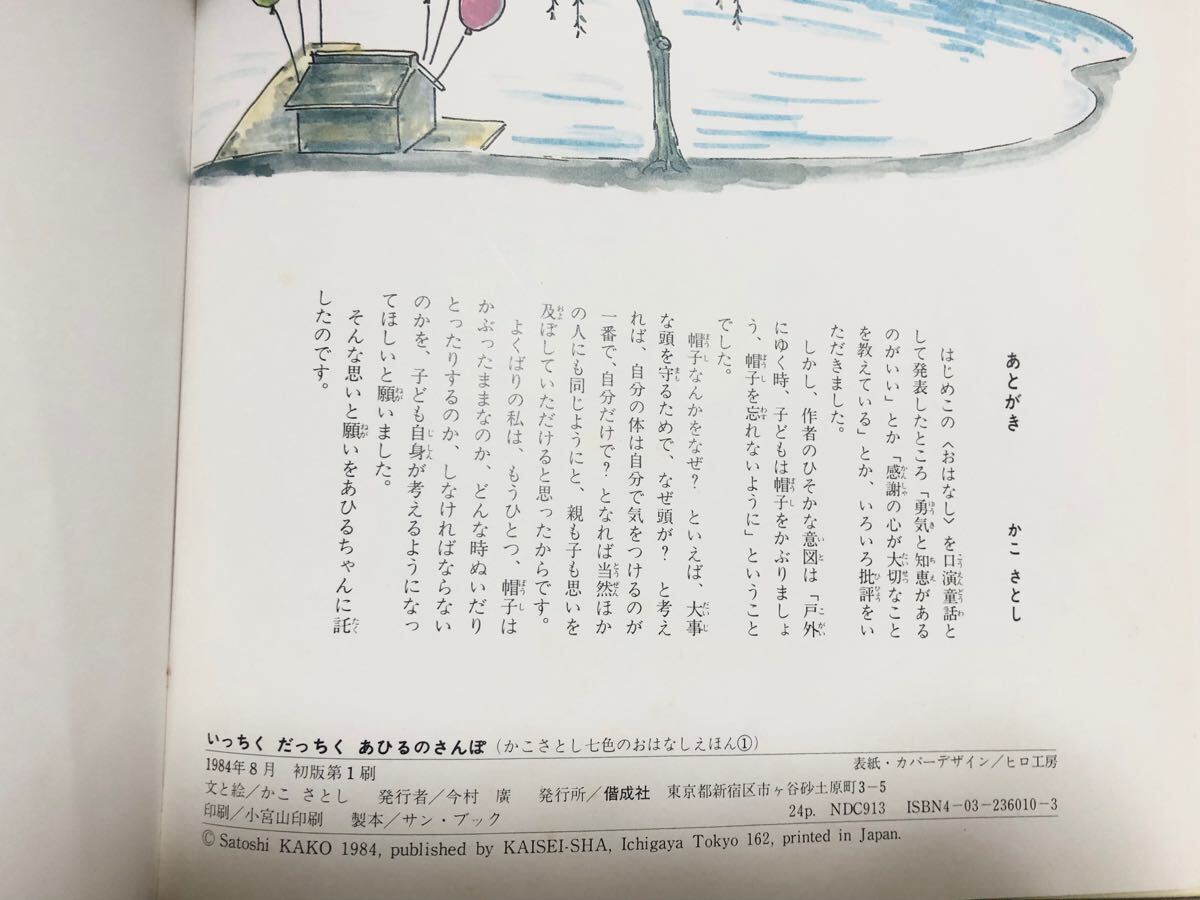 あとがき　かこ さとし
　はじめこの〈おはなし〉を口演童話と
して発表したところ「勇気と知恵がある
のがいい」とか「感謝の心が大切なこと
を教えている」とか、いろいろ批評をい
ただきました。
　しかし、作者のひそかな意図は「戸外
にゆく時、子どもは帽子をかぶりましょ
う、帽子を忘れないように」ということ
でした。
　帽子なんかをなぜ？　といえば、大事
な頭を守るためで、なぜ頭が？　と考え
れば、自分の体は自分で気をつけるのが
一番で、自分だけで？　となれば当然ほか
の人にも同じようにと、親も子も思いを
及ぼしていただけると思ったからです。
　よくばりの私は、もうひとつ、帽子は
かぶったままなのか、どんな時ぬいだり
とったりするのか、しなければならない
のかを、子ども自身が考えるようになっ
てほしいと願いました。
　そんな思いと願いをあひるちゃんに託
したのです。
いっちく だっちく あひるのさんぽ（かこさとし七色のおはなしえほん①）
1984年8月　初版第1刷　表紙・カバーデザイン／ヒロ工房
文と絵／かこ さとし　発行者／今村 廣　発行所／偕成社　東京都新宿区市ヶ谷砂土原町3−5
印刷／小宮山印刷　製本／サン・ブック　24p. NDC913 ISBN4-03-236010-3
© Satoshi KAKO 1984, published by KAISEI-SHA, Ichigaya Tokyo 162, printed in Japan.